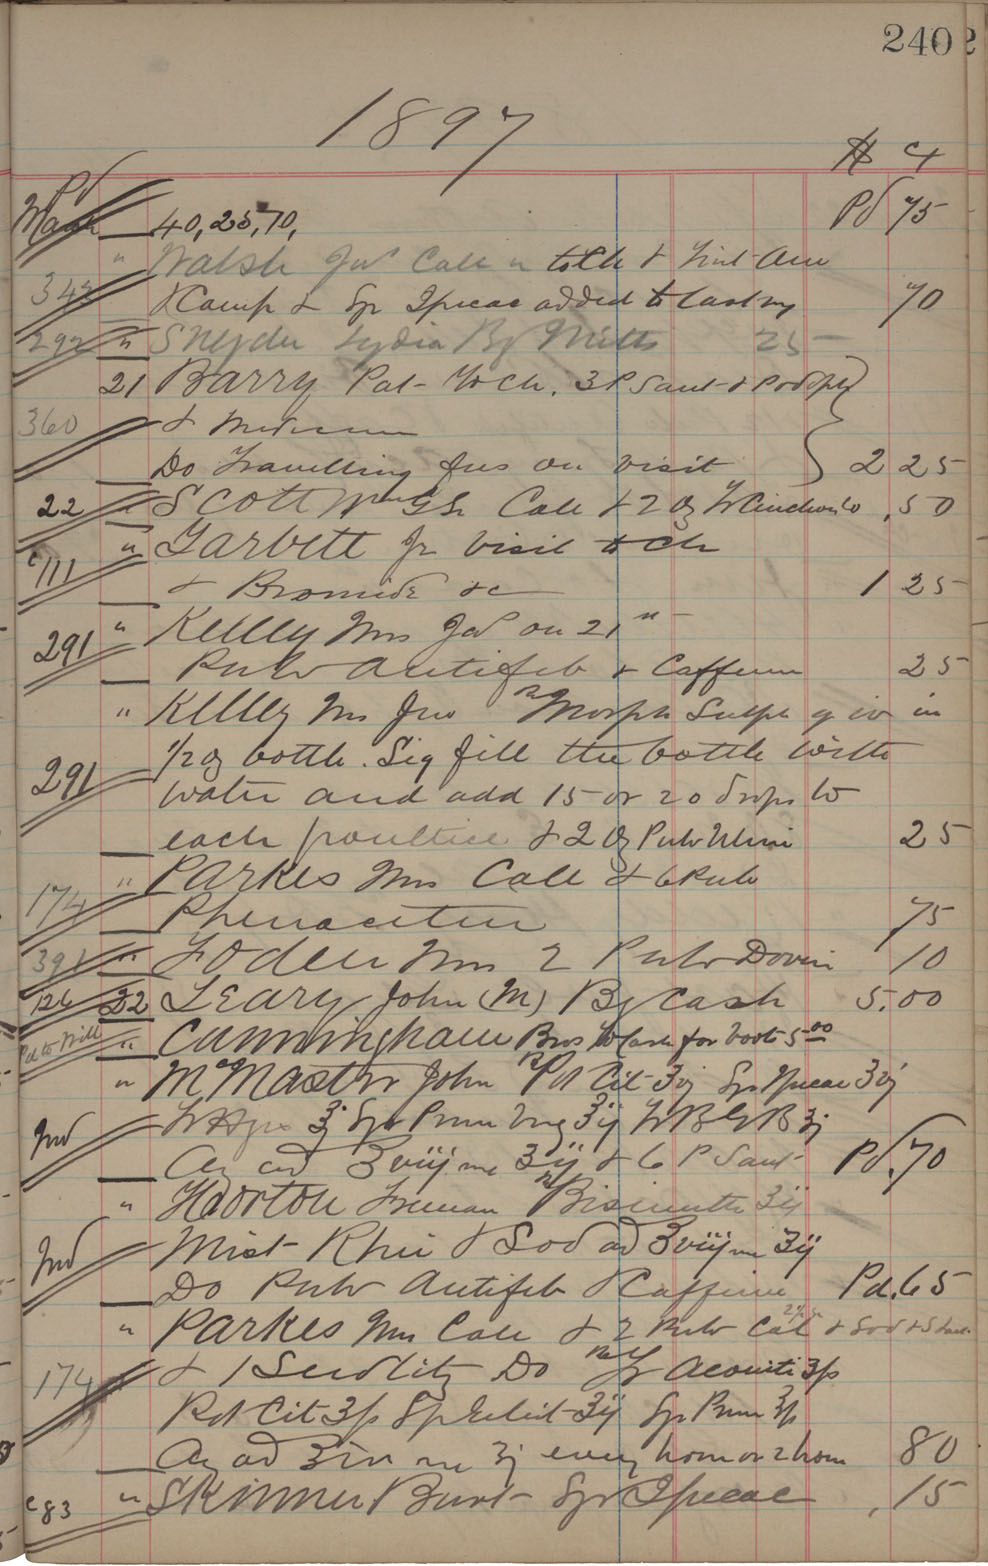 240
1897
$ ct
Pd
March 40, 25, 70, Pd 75
" Walsh Jas Call & to Ch & Lint Am
342 & Camp & Syr Ipecac added to last my 70
292 " SNyder Lydia By Mitts 25 —
21 BARRy Pat- to Ch. 3 P Sant & Podoph
360 &
Do Travelling fees on visit 2 25
22 " SCOTT Wm Call & 2 oz Tr Cinchon Co .50
c111 " GARbETT Jr Visit to Ch
& Bromide &c 1 25
291 " KElley Mrs Jas on 21st
Pulv Antifeb & Caffeine 25
" KElley Mrs Jno Rx Morph Sulph g iv in
291 1/2 oz bottle. Sig fill the bottle with
water and add 15 or 20 drops to
each poultice & 2 oz Pulv Ulmi 25
174 " PARKES Mrs Call & 6 Pulv
Phenacetin 75
391 " FODEN Mrs 2 Pulv Doveri 10
126 22 LEARy John (M) By Cash 5.00
Pd to Will " CUNNINgham Bros to Cash for boots 5 00
" McMASTER John Rx Pot Cit ʒij Syr Ipecac ʒij
Ind Syr Prun Virg ʒij
Aq ad ℥viij me ʒij & 6 P Sant Pd .70
" HORTON Truman Rx Bismuth ʒij
Ind Mist Rhei & Sod ad ℥viij me ʒij
Do Pulv Antifeb & Caffeine Pd .65
" PARKES Mrs Call & 2 Pulv Cal & Sod
174 & 1 Seidlitz Do Rx Tr Aconiti
Pot Cit Syr Prun
Aq ad ℥iv me ʒj every hour or 2 hour 80
c83 " SKINNER Burt Syr Ipecac .15